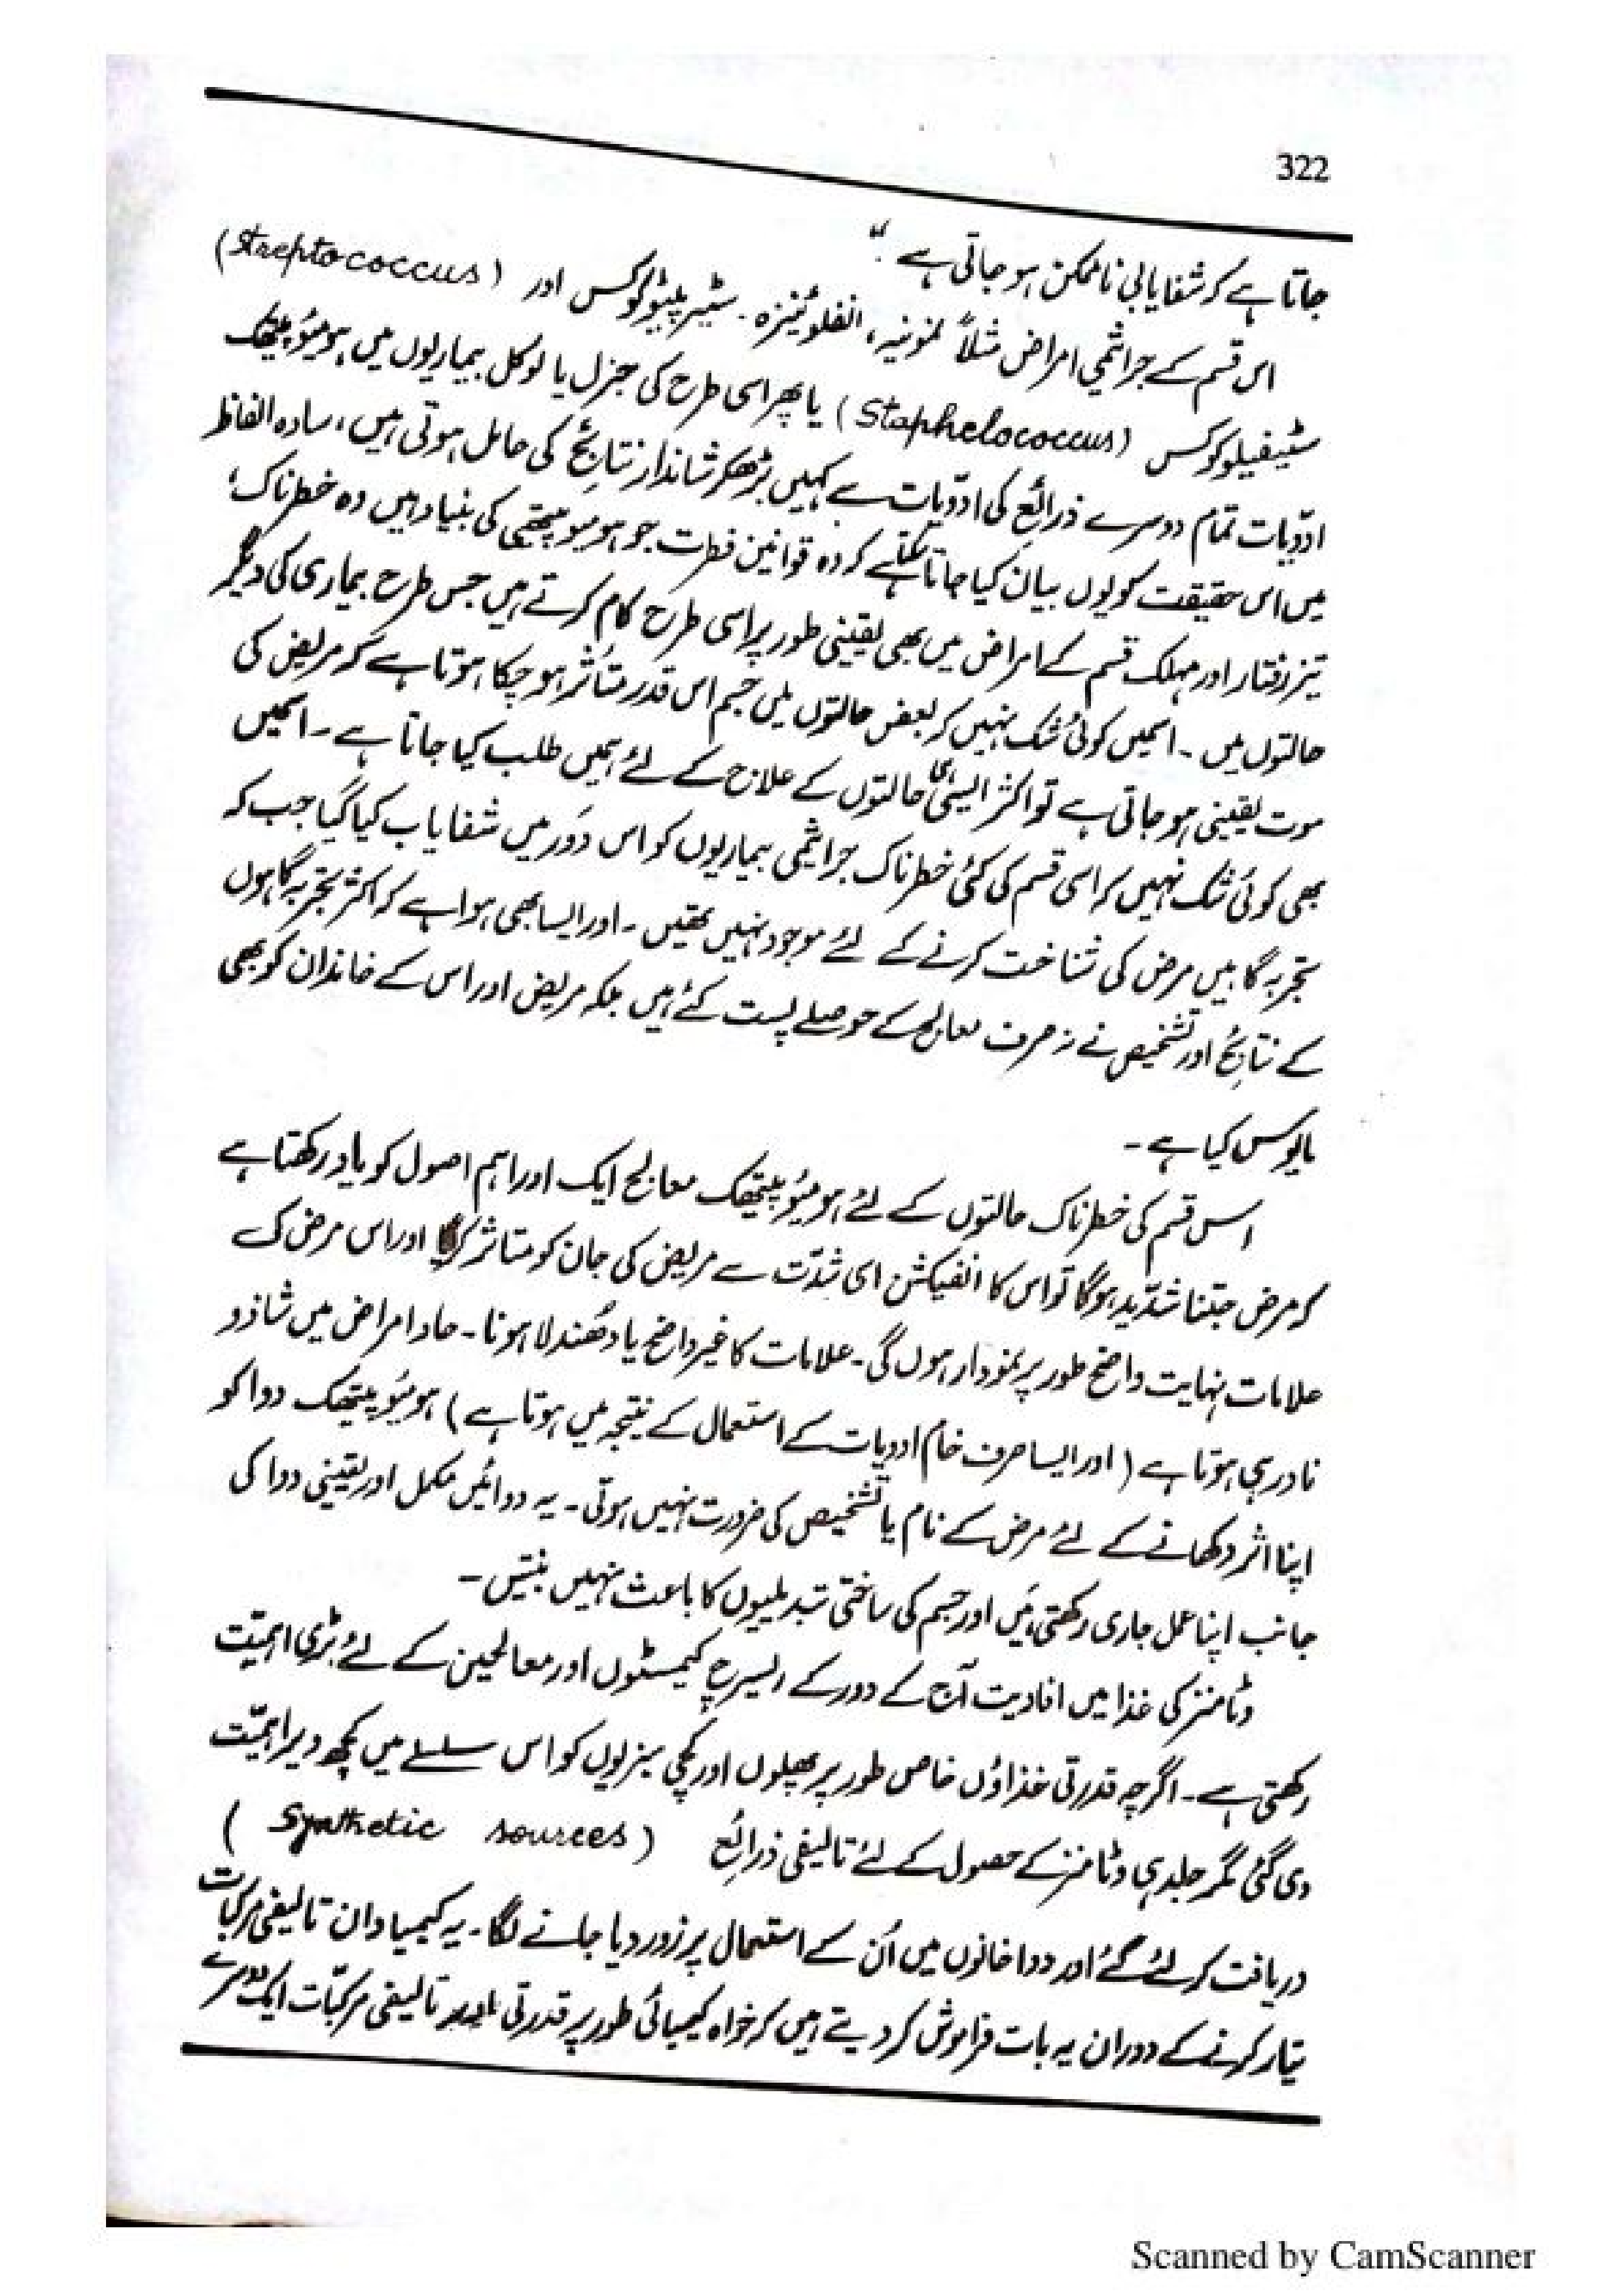 322
جاتا ہے کہ شفایابی ناممکن ہو جاتی ہے"۔
اس قسم کے جراثیمی امراض مثلاً نمونیہ، انفلوئینزہ۔ سٹیریپٹوکوکس اور (Streptococcus)
سٹیفیلوکوکس (Staphelococcus) یا پھر اسی طرح کی جنرل یا لوکل بیماریوں میں ہومیوپیتھک
ادویات تمام دوسرے ذرائع کی ادویات سے کہیں بڑھ کر شاندار نتائج کی حامل ہوتی ہیں، سادہ الفاظ
میں اس حقیقت کو یوں بیان کیا جاتا ہے کہ وہ قوانین فطرت جو ہومیوپیتھی کی بنیاد ہیں وہ خطرناک،
تیز رفتار اور مہلک قسم کے امراض میں بھی یقینی طور پر اسی طرح کام کرتے ہیں جس طرح بیماری کی دیگر
حالتوں میں۔ اسمیں کوئی شک نہیں کہ بعض حالتوں میں جسم اس قدر متأثر ہو چکا ہوتا ہے کہ مریض کی
موت یقینی ہو جاتی ہے تو اکثر ایسی ہی حالتوں کے علاج کے لئے ہمیں طلب کیا جاتا ہے۔ اسمیں
بھی کوئی شک نہیں کہ اسی قسم کی کئی خطرناک جراثیمی بیماریوں کو اس دَور میں شفایاب کیا گیا جب کہ
تجربہ گاہیں مرض کی شناخت کرنے کے لئے موجود نہیں تھیں۔ اور ایسا بھی ہوا ہے کہ اکثر تجربہ گاہوں
کے نتائج اور تشخیص نے نہ صرف معالج کے حوصلے پست کئے ہیں بلکہ مریض اور اس کے خاندان کو بھی
مایوس کیا ہے۔
اس قسم کی خطرناک حالتوں کے لئے ہومیوپیتھک معالج ایک اور اہم اصول کو یاد رکھتا ہے
کہ مرض جتنا شدید ہوگا تو اس کا انفیکشن اسی شدّت سے مریض کی جان کو متاثر کرے گا اور اس مرض کی
علامات نہایت واضح طور پر نمودار ہوں گی۔ علامات کا غیر واضح یا دُھندلا ہونا۔ حاد امراض میں شاذ و
نادر ہی ہوتا ہے (اور ایسا صرف خام ادویات کے استعمال کے نتیجہ میں ہوتا ہے) ہومیوپیتھک دوا کو
اپنا اثر دکھانے کے لئے مرض کے نام یا تشخیص کی ضرورت نہیں ہوتی۔ یہ دوائیں مکمل اور یقینی دوا کی
جانب اپنا عمل جاری رکھتی ہیں اور جسم کی ساختی تبدیلیوں کا باعث نہیں بنتیں۔
وٹامنز کی غذا میں افادیت آج کے دور کے ریسرچ کیمسٹوں اور معالجین کے لئے بڑی اہمیّت
رکھتی ہے۔ اگرچہ قدرتی غذاؤں خاص طور پر پھلوں اور کچی سبزیوں کو اس سلسلے میں کچھ دیر اہمیّت
دی گئی مگر جلد ہی وٹامنز کے حصول کے لئے تالیفی ذرائع (Synthetic sources)
دریافت کر لئے گئے اور دوا خانوں میں اُن کے استعمال پر زور دیا جانے لگا۔ یہ کیمیا دان تالیفی مرکبات
تیار کرنے کے دوران یہ بات فراموش کر دیتے ہیں کہ خواہ کیمیائی طور پر قدرتی اور تالیفی مرکبّات ایک دوسرے
Scanned by CamScanner